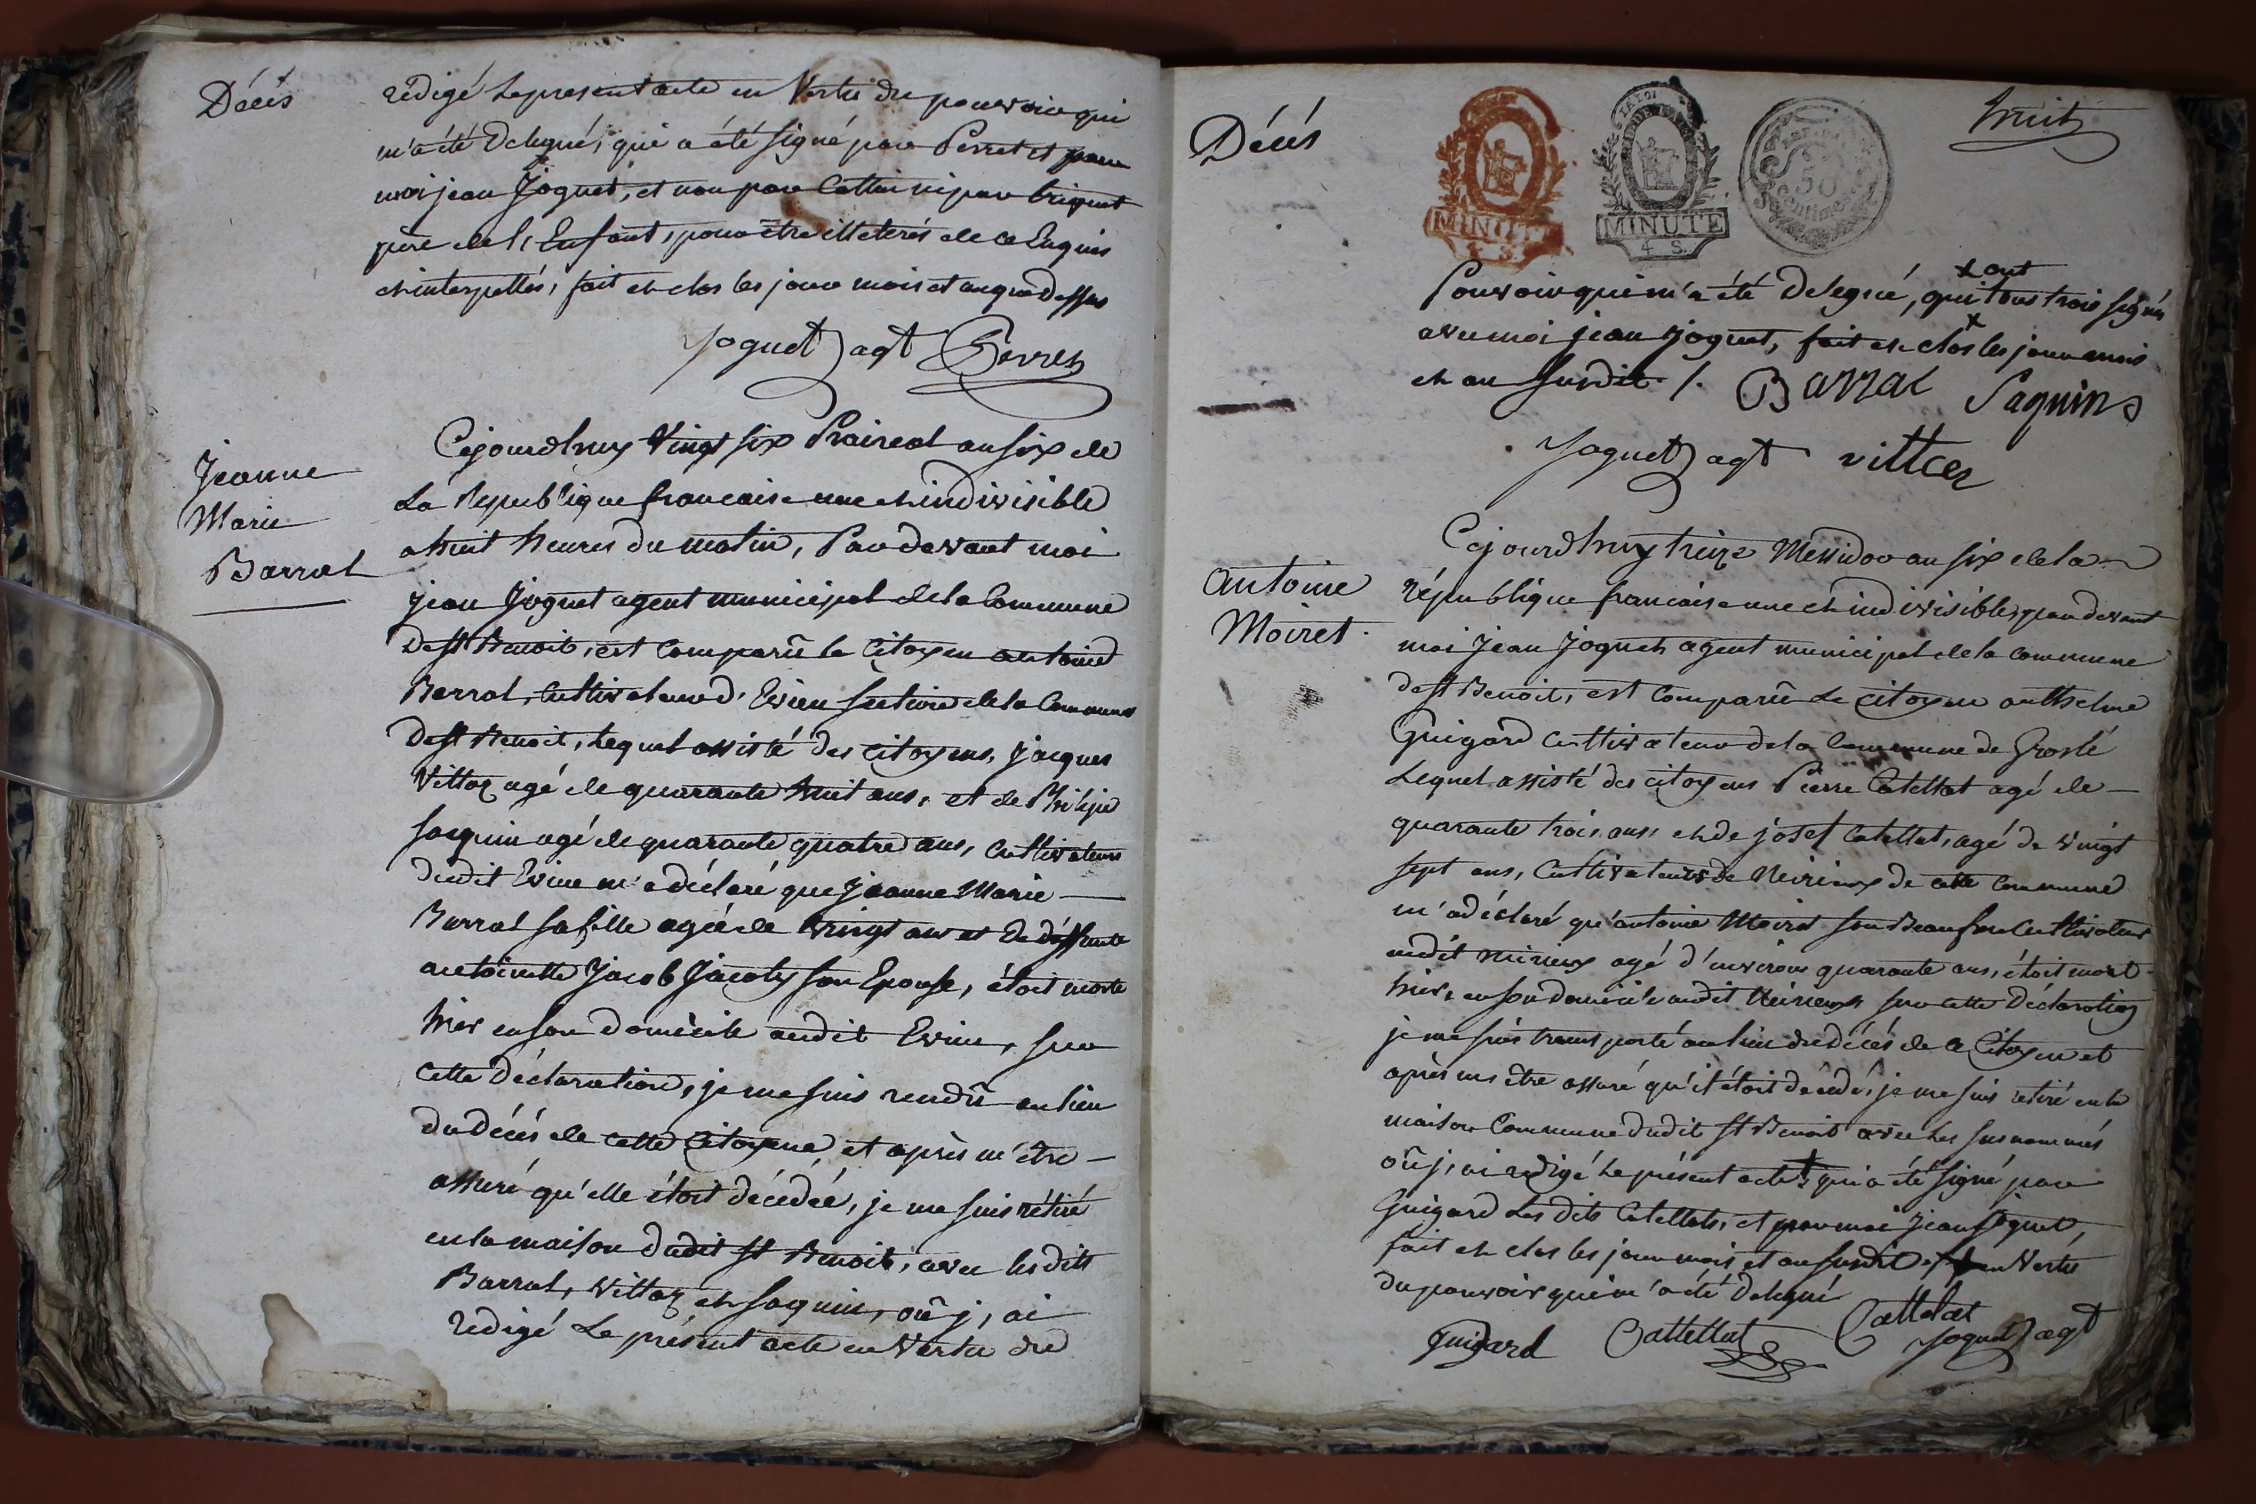 Décés
rédigé le present acte en Vertu du pouvoir qui
m'a été Delegué, qui a été signé par Perret et par
moi jean Joguet, et non par Cattin ni par
père de l'Enfant, pour être illeterés de ce Enquis
et interpellés, fait et clos les jour mois et an que dessus
Joguet agt Perret
Jeanne
Marie
Barrat
Cejourdhuy Vingt six Praireal an six de
La Republique francaise une et indivisible
a huit heures du matin, Pardevant moi
jean Joguet agent municipal de la Commune
De st Benoit, est Comparû le Citoyen antoine
Barrat, Cultivateur d'Evieu section de la Commune
De st Benoit, lequel assisté des citoyens, Jacques
Vittoz agé de quarante huit ans, et de Philipe
saquin agé de quarante quatre ans, cultivateurs
dudit Evieu m'a déclaré que Jeanne Marie
Barrat sa fille agée de Vingt ans et De deffunte
antoinette Jacob Jacoty son Epouse, étoit morte
hier en son domicile audit Evieu, sur
cette déclaration, je me suis rendû au lieu
du décés de cette Citoyene et après m'être
assuré qu'elle étoit décédée, je me suis rétiré
en la maison dudit st Benoit, avec les dits
Barrat, Vittoz et saquin, oû j'ai
redigé Le présent acte en Vertu du
Décés
huit
MINUTE
4 S.
LA LOI
MINUTE
4 S.
50
centimes
Pouvoir qui m'a été Delegué, qui x ont tous trois signés
avec moi jean Joguet, fait et clos les jour mois
et an susdit /. Barrat Saquins
Joguet agt vittoz
antoine
Moiret
Cejourdhuy treize Messidor an six de la
république francaise une et indivisible, pardevant
moi Jean Joguet agent municipal de la commune
de st Benoit, est Comparû Le citoyen anthelme
Guigard cultivateur de la Commune de Groslé
Lequel assisté des citoyens Pierre Catellat agé de
quarante trois ans, et de josef Catellat, agé de vingt
sept ans, Cultivateurs de Neirieux de cette Commune
m'a déclaré qu'antoine Moiret son Beaufrere Cultivateur
audit Nirieux agé d'environ quarante ans, étoit mort
hier, en son domicile audit Neirieux sur cette Déclaration
je me suis transporté au lieu du décés de ce Citoyen et
après m'être assuré qu'il étoit décédé, je me suis retiré en la
maison Commune dudit st Benoit avec les susnommés
oû j'ai redigé le présent acte + qui a été signé par
Guigard Les dits Catellats, et par moi Jean Joguet,
fait et clos les jour mois et an susdit. /. + en Vertu
du pouvoir qui m'a été Delegué
Guigard Cattellat Cattelat
Joguet agt